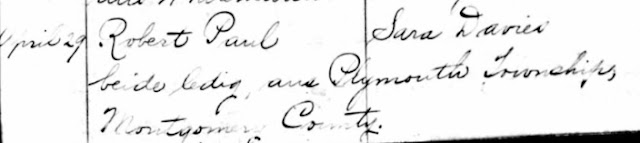 April 29 Robert Paul Sara Davies
beide ledig, aus Plymouth Township,
Montgomery County.